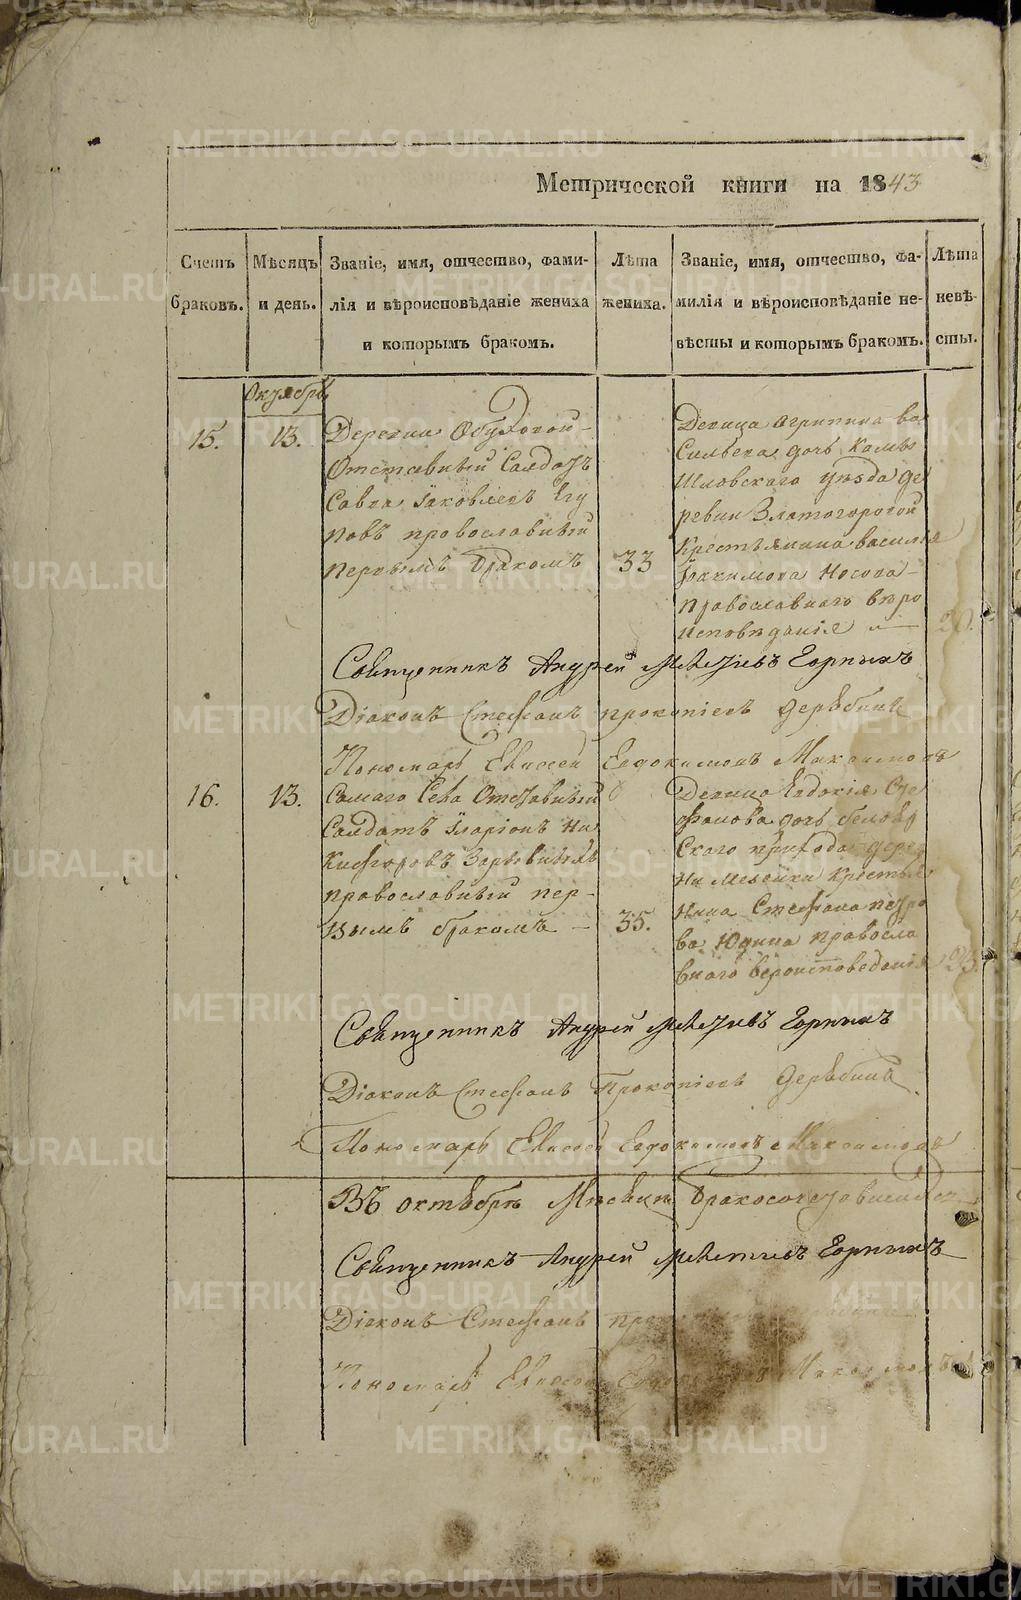 Метрической книги на 1843
Счетъ браковъ.
Мѣсяцъ и день.
Званіе, имя, отчество, фами-
лія и вѣроисповѣданіе жениха
и которымъ бракомъ.
Лѣта жениха.
Званіе, имя, отчество, фа-
милія и вѣроисповѣданіе не-
вѣсты и которымъ бракомъ.
Лѣта невѣ-
сты.
Октябрь
15.
13.
Деревни Обуховой
Отставный Салдатъ
Савва Іаковлевъ Егу
новъ православный
первымъ бракомъ
33
Девица Агрипина ва
сильева дочь Камы
шловскаго уѣзда де
ревни Златогоровой
Крестьянина василья
Іоакимова Носова
православнаго вѣро
исповѣданія
20.
Священникъ Андрей Мѣлетіевъ Горныхъ
Діаконъ Стефанъ прокопіевъ Дерябинъ
Пономарь Елисей Евдокимовъ Максимовъ
16.
13.
Самаго Села Отставный
Салдатъ Іларіонъ Ни
кифоровъ
православный пер-
вымъ бракомъ
35.
Девица Евдокія Сте
фанова дочь белояр
скаго прихода дерев
ни Мезенки Крестья
нина Стефана петро
ва Юдина правосла
внаго вероисповеданія
23.
Священникъ Андрей Мѣлетіевъ Горныхъ
Діаконъ Стефанъ Прокопіевъ Дерябинъ
Пономарь Елисей Евдокимовъ Максимовъ
Въ октябрѣ Мѣсяцѣ бракосочетавшихся
Священникъ Андрей Мѣлетіевъ Горныхъ
Діаконъ Стефанъ
Пономарь Елисей Максимовъ
METRIKI.GASO-URAL.RU